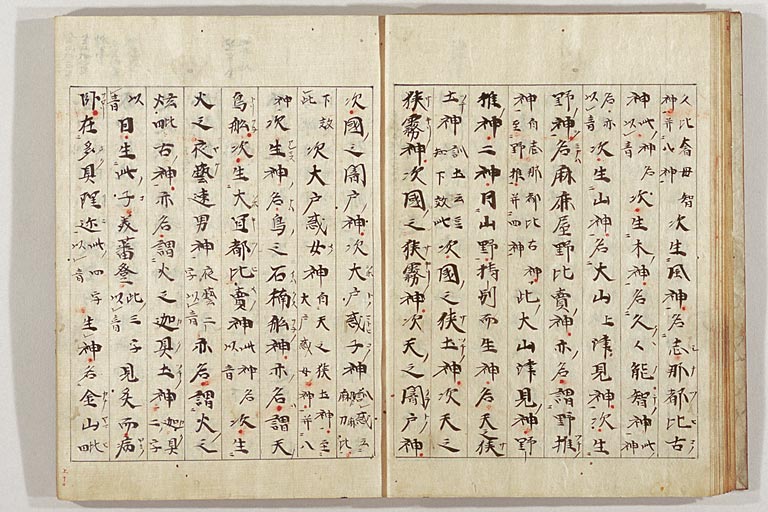 久比奢母智神并八神次生風神名志那都比古
神此神名以音次生木神名久々能智神此神
名亦以音次生山神名大山上津見神次生
野神名麻麻屋野比賣神亦名謂野椎
神自志那都比古神至野椎并四神此大山津見神野
椎神二神因山野持別而生神名天狭
土神訓土云豆知下效此次國之狭土神次天之
狭霧神次國之狭霧神次天之闇戸神
次國之闇戸神次大戸惑子神訓惑云麻刀比
下效此次大戸惑女神自天之狭土神至大戸惑女神并八
神次生神名鳥之石楠船神亦名謂天
鳥船次生大冝都比賣神此神名以音次生
火之夜藝速男神夜藝二字以音亦名謂火之
炫毗古神亦名謂火之迦具土神迦具二字
以音因生此子美蕃登此三字以音見炙而病
卧在多具理迩此四字以音生神名金山毗